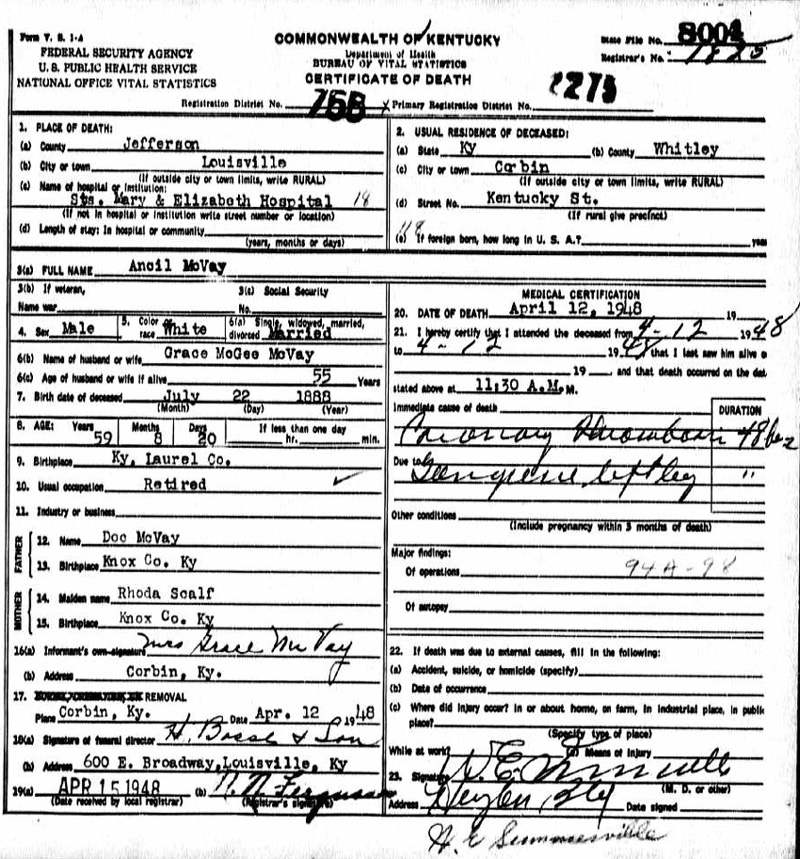 Form V. S. 1-A
FEDERAL SECURITY AGENCY
U. S. PUBLIC HEALTH SERVICE
NATIONAL OFFICE VITAL STATISTICS
COMMONWEALTH OF KENTUCKY
Department of Health
BUREAU OF VITAL STATISTICS
CERTIFICATE OF DEATH
State File No. 8004
Registrar's No. 1825
Registration District No. 755 Primary Registration District No. 2275
1. PLACE OF DEATH:
(a) County Jefferson
(b) City or town Louisville
(If outside city or town limits, write RURAL)
(c) Name of hospital or institution:
Sts. Mary & Elizabeth Hospital 18
(If not in hospital or institution write street number or location)
(d) Length of stay: In hospital or community
(years, months or days)
2. USUAL RESIDENCE OF DECEASED:
(a) State Ky (b) County Whitley
(c) City or town Corbin
(If outside city or town limits, write RURAL)
(d) Street No. Kentucky St.
(If rural give precinct)
(e) If foreign born, how long in U. S. A.?
3(a) FULL NAME Ancil McVay
3(b) If veteran, 3(c) Social Security
Name war No.
4. Sex Male 5. Color or race White 6(a) Single, widowed, married, divorced Married
6(b) Name of husband or wife Grace McGee McVay
6(c) Age of husband or wife if alive 55 Years
7. Birth date of deceased July 22 1888
(Month) (Day) (Year)
8. AGE: Years 59 Months 8 Days 20 If less than one day hr. min.
9. Birthplace Ky. Laurel Co.
10. Usual occupation Retired
11. Industry or business
FATHER
12. Name Doc McVay
13. Birthplace Knox Co. Ky
MOTHER
14. Maiden name Rhoda Scalf
15. Birthplace Knox Co. Ky
16(a) Informant's own signature Mrs Grace McVay
(b) Address Corbin, Ky.
17. REMOVAL
Place Corbin, Ky. Date Apr. 12 1948
18(a) Signature of funeral director H. Bosse & Son
(b) Address 600 E. Broadway, Louisville, Ky
19(a) APR 15 1948 (b)
(Date received by local registrar) (Registrar's signature)
MEDICAL CERTIFICATION
20. DATE OF DEATH April 12, 1948 19
21. I hereby certify that I attended the deceased from 4-12 1948
to 4-12 1948 that I last saw him alive o
19 and that death occurred on the dat
stated above at 11:30 A.M. M.
Immediate cause of death DURATION
Coronary Thrombosis 48
Due to Gangrene left leg "
Other conditions
(Include pregnancy within 3 months of death)
Major findings:
Of operations 94A-98
Of autopsy
22. If death was due to external causes, fill in the following:
(a) Accident, suicide, or homicide (specify)
(b) Date of occurrence
(c) Where did injury occur? In or about home, on farm, in industrial place, in public
place?
(Specify type of place)
While at work (d) Means of injury
23. Signature
(M. D. or other)
Address Date signed
H E Summerville